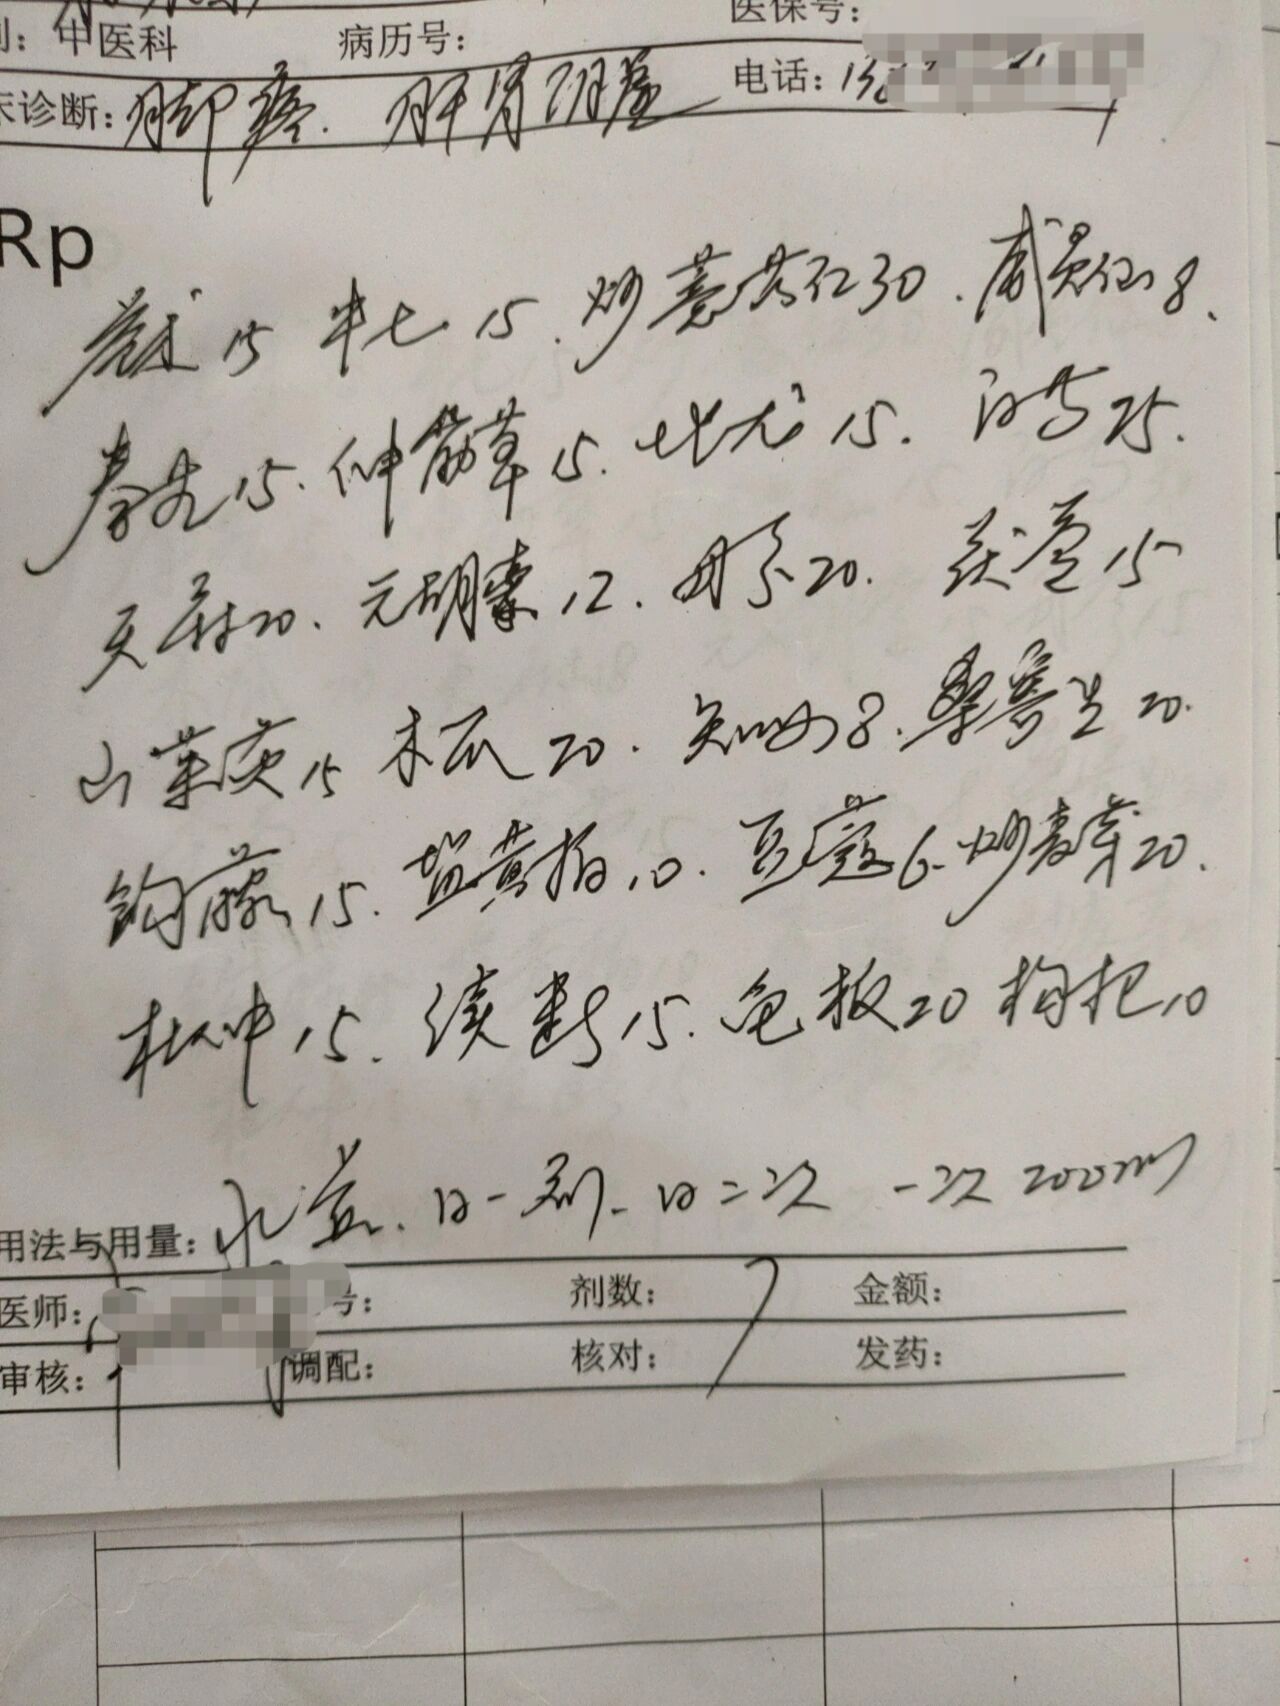 医保号:
别: 中医科 病历号:
床诊断: 脚疼. 肝肾阴虚 电话:
Rp
苍术 15 牛七 15. 炒薏苡仁 30. 威灵仙 8.
秦艽 15. 伸筋草 15. 15. 白芍 25.
天麻 20. 元胡索 12. 丹参 20. 茯苓 15
山茱萸 15 木瓜 20. 知母 8. 桑寄生 20.
钩藤 15. 盐黄柏 10. 豆蔻 6. 炒麦芽 20.
杜仲 15. 续断 15. 龟板 20 枸杞 10
用法与用量: 水煎. 日一剂. 日二次 一次 200ml
医师: 号: 剂数: 7 金额:
审核: 调配: 核对: 发药: